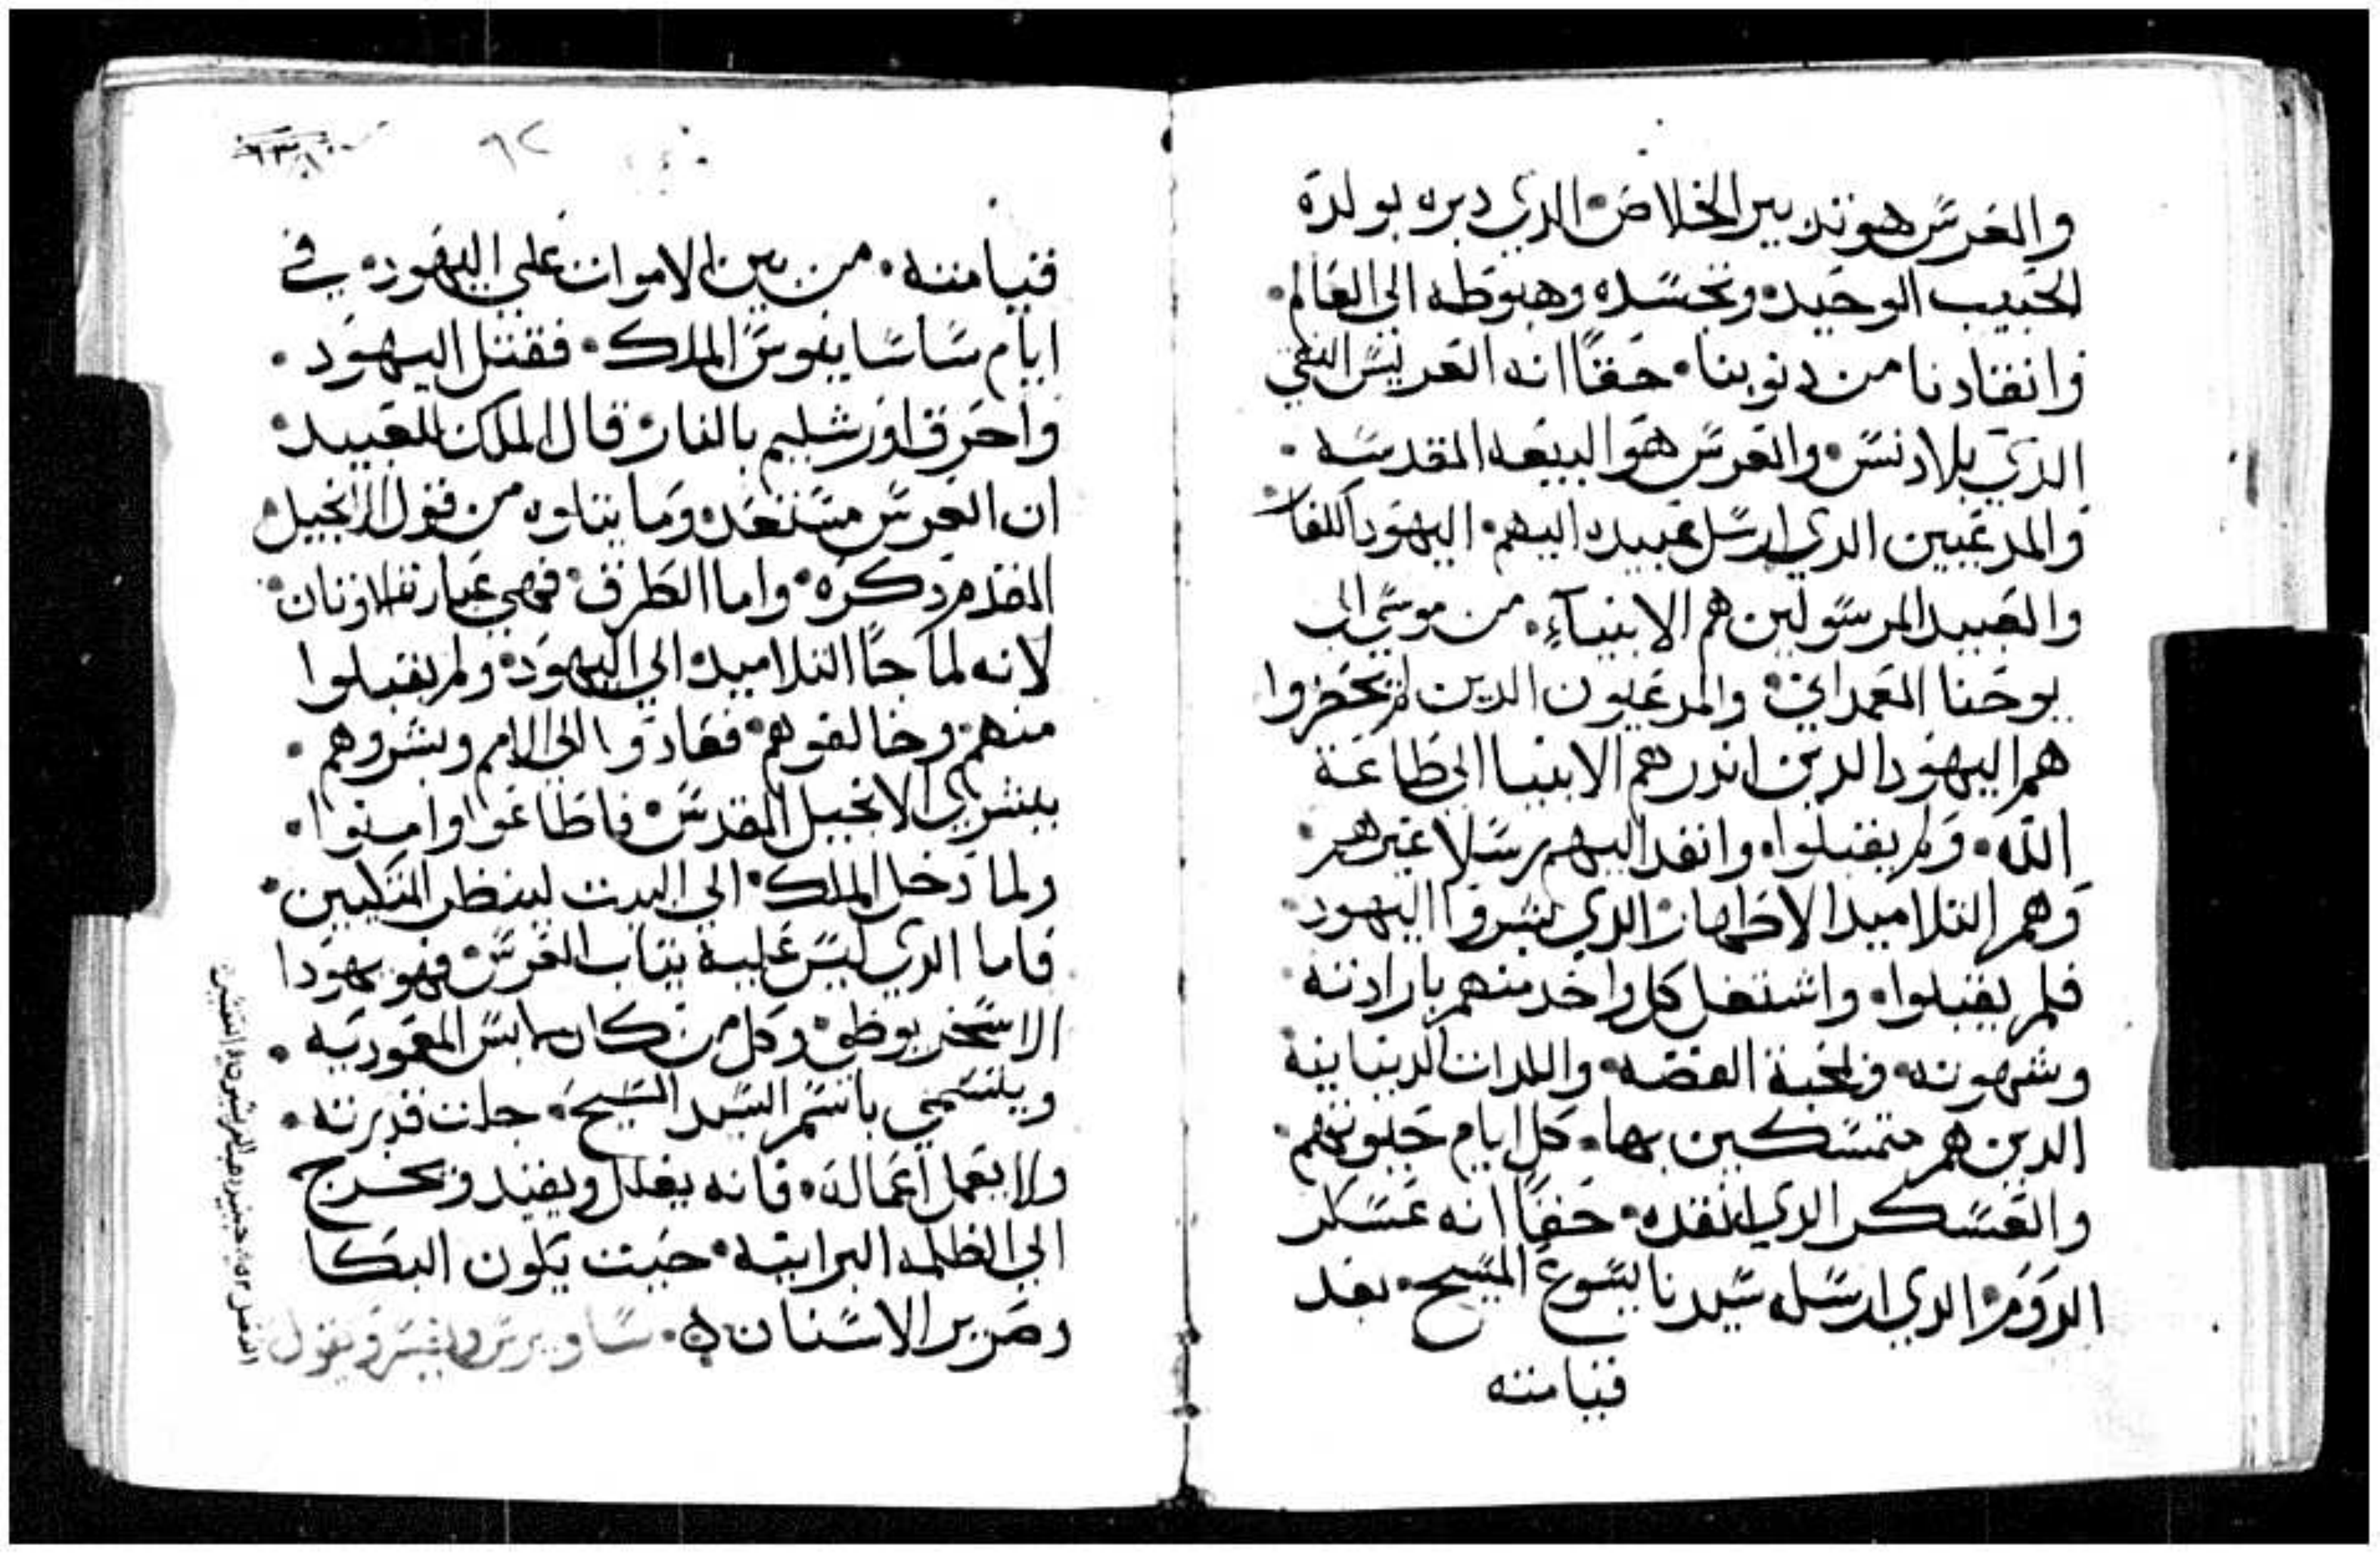 والعرس هو تدبير الخلاص الدي دبره بولده
الحبيب الوحيد وتجسده وهبوطه الى العالم
وانقادنا من دنوبنا حقًا انه العريس النقي
الدي بلا دنس والعرس هو البيعه المقدسه
والمدعيين الدي ارسل عبيده اليهم اليهود الكفار
والعبيد المرسولين هم الانبيآء من موسي الى
يوحنا المعمداني والمدعيون الدين لم يحضروا
هم اليهود الدين اندرهم الانبيا الى طاعة
الله ولم يقبلوا وانفد اليهم رسلا غيرهم
وهم التلاميد الاطهار الدي بشروا اليهود
فلم يقبلوا واشتغل كل واحد منهم بارادته
وشهوته في محبة الفضه واللدات الدنيانيه
الدين هم متمسكين بها كل ايام حيوتهم
والعسكر الدي انفده حقًا انه عسكر
الروم الدي ارسله سيدنا يسوع المسيح بعد
قيامته
٩٢
قيامته من بين الاموات علي اليهود في
ايام ساساينوس الملك فقتل اليهود
واحرق اورشليم بالنار قال الملك للعبيد
ان العرس مستعده وما يتلوه من قول الانجيل
المقدم دكره واما الطرق فهي عبارة الاوتان
لانه لما جا التلاميد الي اليهود ولم يقبلوا
منهم وخالفوهم فعادوا الي الامم وبشروهم
ببشري الانجيل المقدس فاطاعوا وامنوا
ولما دخل الملك الي البيت لينظر المتكيين
فاما الدي ليس عليه بتاب العرس فهو يهودا
الاسخريوطي وكل من كان لابس المعموديه
ويتسمي باسم السيد المسيح جلت قدرته
ولا يعمل اعماله فانه يغلل ويقيد ويخرج
الي الظلمه البرانيه حيت يكون البكا
وصرير الاسنان ساويرس يفسر ويقول